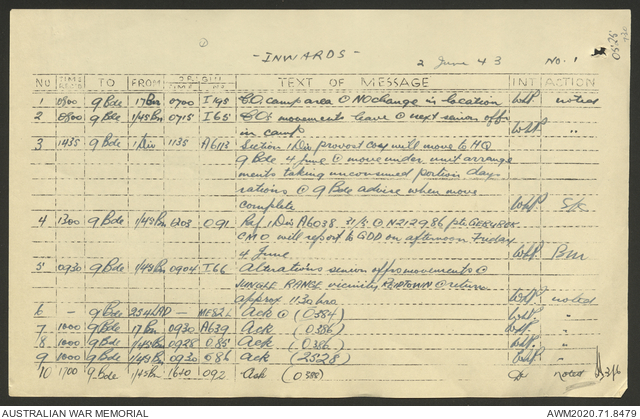 - INWARDS -
2 June 43 No. 1
NO TIME RECD TO FROM ORIGIN TIME TEXT OF MESSAGE INT ACTION
1 0800 9 Bde 17 Bn 0700 I 145 C.O. camp area @ NO change in location noted
2 0800 9 Bde 1/45 Bn 0715 I 65 C.O's movements leave @ next senior offr
in camp "
3 1435 9 Bde 1 Div 1135 A6113 Section 1 Div provost Coy will move to HQ
9 Bde 4 June @ move under unit arrange
ments taking unconsumed portion days
rations @ 9 Bde advise when move
complete S/C
4 1300 9 Bde 1/45 Bn 1203 091 Ref 1 Div A6038 31/5 @ N212986 pte
CMO will report to GDD on afternoon Friday
4 June BM
5 0930 9 Bde 1/45 Bn 0904 I.66 Alterations senior offrs movements @
JUNGLE RANGE vicinity @ return
approx 1130 hrs noted
6 - 9 Bde 25 LAD - ME826 Ack @ (0384) "
7 1000 9 Bde 17 Bn 0930 A639 Ack (0386) "
8 1000 9 Bde 1/45 Bn 0928 085 Ack (0386) "
9 1000 9 Bde 1/45 Bn 0930 086 Ack (2528) "
10 1700 9 Bde 1/45 Bn 1640 092 Ack (0388) noted
AUSTRALIAN WAR MEMORIAL AWM2020.71.8479